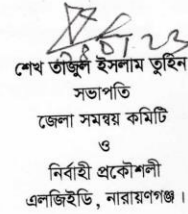 28.01.23
শেখ তাজুল ইসলাম তুহিন
সভাপতি
জেলা সমন্বয় কমিটি
ও
নির্বাহী প্রকৌশলী
এলজিইডি, নারায়ণগঞ্জ।